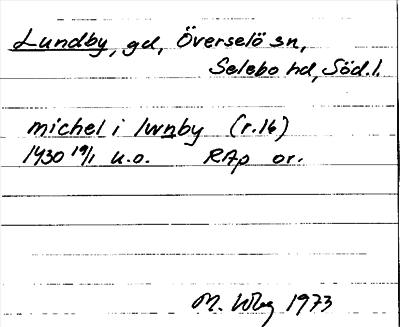 Lundby, gd, Överselö sn,
Selebo hd, Söd.l.
michel i lwnby (r.16)
1430 19/1 u.o. RAp or.
M. Wbg 1973